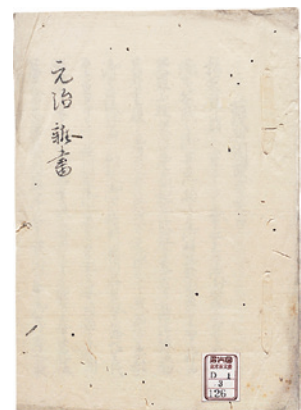 元治 雑書
D 1
3
126